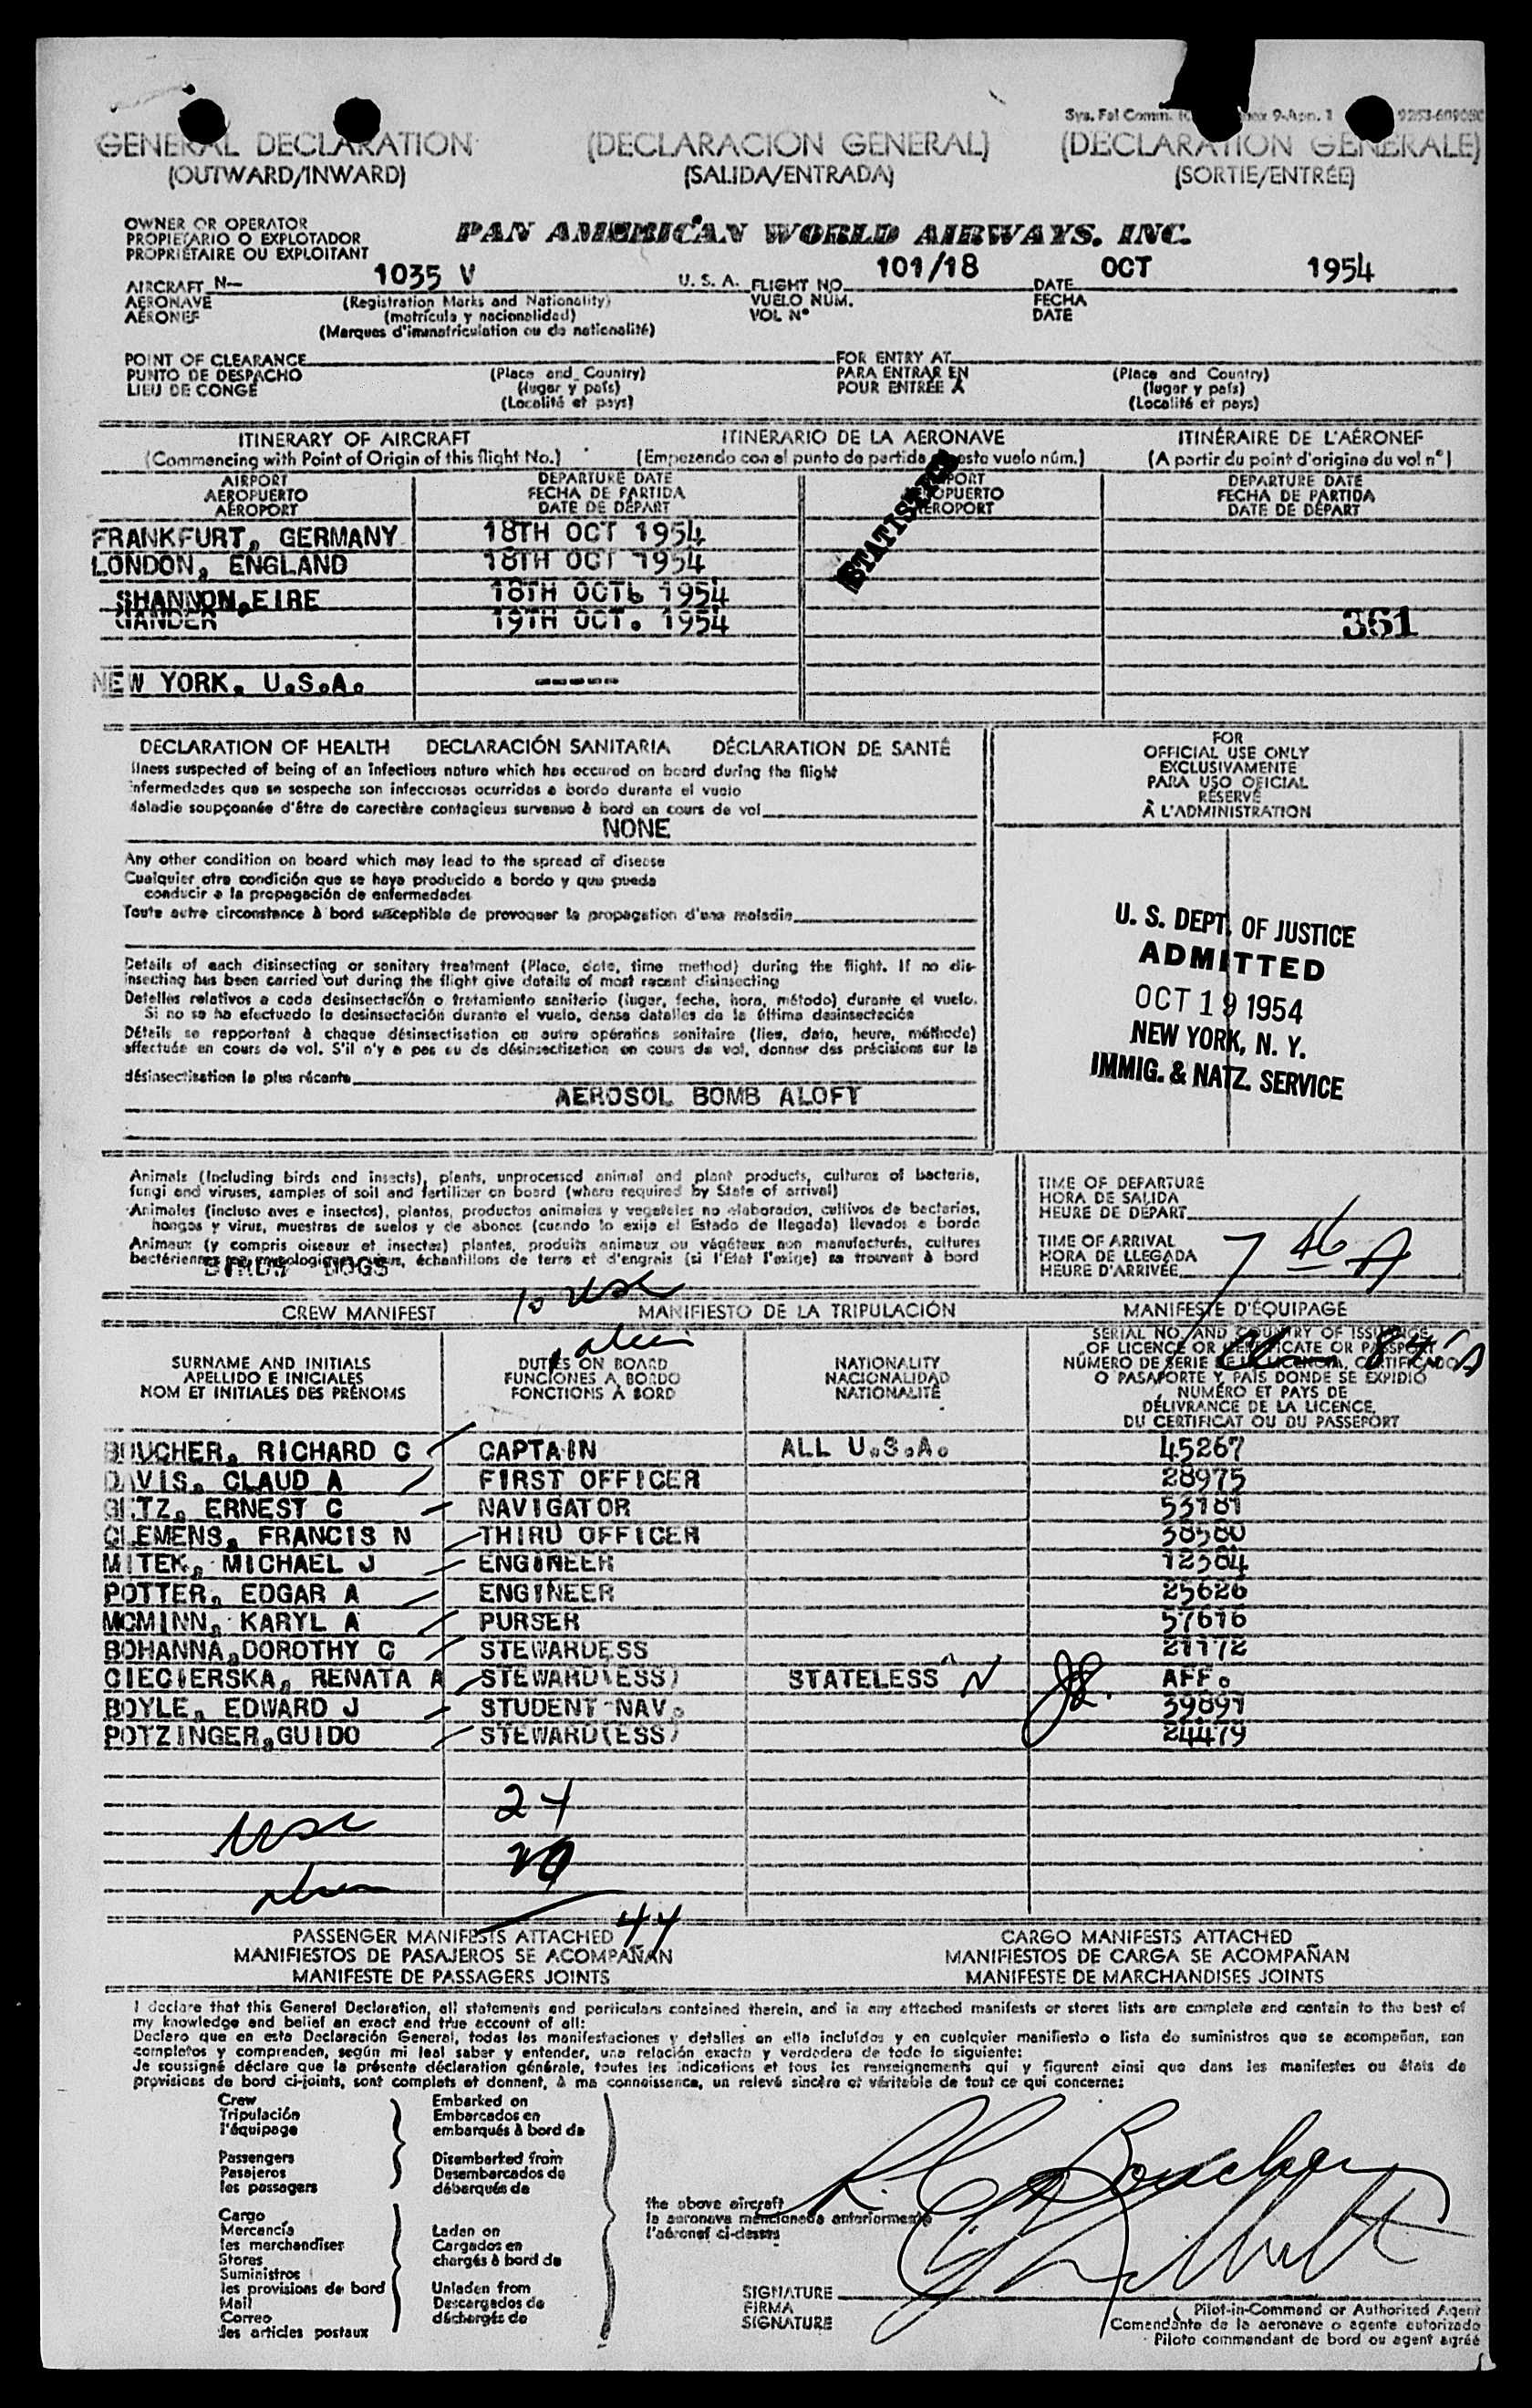 Sys. Fal Comm. 9-Apn. 1
GENERAL DECLARATION (DECLARACION GENERAL) (DECLARATION GENERALE)
(OUTWARD/INWARD) (SALIDA/ENTRADA) (SORTIE/ENTRÉE)
OWNER OR OPERATOR
PROPIETARIO O EXPLOTADOR
PROPRIÉTAIRE OU EXPLOITANT
PAN AMERICAN WORLD AIRWAYS, INC.
AIRCRAFT N— 1035 V U. S. A. FLIGHT NO. 101/18 DATE OCT 1954
AERONAVE (Registration Marks and Nationality) VUELO NÚM. FECHA
AÉRONEF (matrícula y nacionalidad) VOL N° DATE
(Marques d'immatriculation ou de nationalité)
POINT OF CLEARANCE FOR ENTRY AT
PUNTO DE DESPACHO (Place and Country) PARA ENTRAR EN (Place and Country)
LIEU DE CONGÉ (lugar y país) POUR ENTRÉE À (lugar y país)
(Localité et pays) (Localité et pays)
ITINERARY OF AIRCRAFT ITINERARIO DE LA AERONAVE ITINÉRAIRE DE L'AÉRONEF
(Commencing with Point of Origin of this flight No.) (Empezando con el punto de partida esto vuelo núm.) (A partir du point d'origine du vol n°)
AIRPORT DEPARTURE DATE PORT DEPARTURE DATE
AEROPUERTO FECHA DE PARTIDA OPUERTO FECHA DE PARTIDA
AÉROPORT DATE DE DÉPART EROPORT DATE DE DÉPART
STATISTICS
FRANKFURT, GERMANY 18TH OCT 1954
LONDON, ENGLAND 18TH OCT 1954
SHANNON,EIRE 18TH OCT. 1954
GANDER 19TH OCT. 1954
361
NEW YORK, U.S.A. -----
DECLARATION OF HEALTH DECLARACIÓN SANITARIA DÉCLARATION DE SANTÉ
llness suspected of being of an infectious nature which has occured on board during the flight
nfermedades que se sospecha son infecciosas ocurridas a bordo durante el vuelo
Maladie soupçonnée d'être de caractère contagieux survenue à bord en cours de vol
NONE
FOR
OFFICIAL USE ONLY
EXCLUSIVAMENTE
PARA USO OFICIAL
RÉSERVÉ
À L'ADMINISTRATION
Any other condition on board which may lead to the spread of disease
Cualquier otra condición que se haya producido a bordo y que pueda
conducir a la propagación de enfermedades
Toute autre circonstance à bord susceptible de provoquer la propagation d'une maladie
U. S. DEPT. OF JUSTICE
ADMITTED
OCT 19 1954
NEW YORK, N. Y.
IMMIG. & NATZ. SERVICE
Details of each disinsecting or sanitary treatment (Place, date, time method) during the flight. If no dis-
insecting has been carried out during the flight give details of most recent disinsecting
Detalles relativos a cada desinsectación o tratamiento sanitario (lugar, fecha, hora, método) durante el vuelo.
Si no se ha efectuado la desinsectación durante el vuelo, dense detalles de la última desinsectación
Détails se rapportant à chaque désinsectisation ou autre opératins sanitaire (lieu, date, heure, méthode)
affectuée en cours de vol. S'il n'y a pas eu de désinsectisation en cours de vol, donner des précisions sur la
désinsectisation la plus récente
AEROSOL BOMB ALOFT
Animals (Including birds and insects), plants, unprocessed animal and plant products, cultures of bacteria,
fungi and viruses, samples of soil and fertilizer on board (where required by State of arrival)
Animales (incluso aves e insectos), plantas, productos animales y vegetales no elaborados, cultivos de bacterias,
hongos y virus, muestras de suelos y de abonos (cuando lo exija el Estado de llegada) llevados a bordo
Animaux (y compris oiseaux et insectes) plantes, produits animaux ou végétaux non manufacturés, cultures
bactériennes échantillons de terre et d'engrais (si l'Etat l'exige) se trouvant à bord
BIRDS DOGS
TIME OF DEPARTURE
HORA DE SALIDA
HEURE DE DÉPART
TIME OF ARRIVAL
HORA DE LLEGADA
HEURE D'ARRIVÉE
7 46 A
10 usc
1 alien
84 A
CREW MANIFEST MANIFIESTO DE LA TRIPULACIÓN MANIFESTE D'ÉQUIPAGE
SURNAME AND INITIALS DUTIES ON BOARD NATIONALITY SERIAL NO. AND COUNTRY OF ISSUANCE
APELLIDO E INICIALES FUNCIONES A BORDO NACIONALIDAD OF LICENCE OR CERTIFICATE OR PASSPORT
NOM ET INITIALES DES PRÉNOMS FONCTIONS À BORD NATIONALITÉ NÚMERO DE SERIE DE LA LICENCIA, CERTIFICADO
O PASAPORTE Y PAÍS DONDE SE EXPIDIÓ
NUMÉRO ET PAYS DE
DÉLIVRANCE DE LA LICENCE,
DU CERTIFICAT OU DU PASSEPORT
BOUCHER, RICHARD C CAPTAIN ALL U.S.A. 45267
DAVIS, CLAUD A FIRST OFFICER 28975
GETZ, ERNEST C NAVIGATOR 53181
CLEMENS, FRANCIS N THIRD OFFICER 38580
MITEK, MICHAEL J ENGINEER 12384
POTTER, EDGAR A ENGINEER 25626
MCMINN, KARYL A PURSER 57616
BOHANNA,DOROTHY C STEWARDESS 21172
CIECIERSKA, RENATA A STEWARD(ESS) STATELESS N AFF.
BOYLE, EDWARD J STUDENT NAV. 39897
POTZINGER,GUIDO STEWARD(ESS) 24479
usc 24
alien 20
44
PASSENGER MANIFESTS ATTACHED CARGO MANIFESTS ATTACHED
MANIFIESTOS DE PASAJEROS SE ACOMPAÑAN MANIFIESTOS DE CARGA SE ACOMPAÑAN
MANIFESTE DE PASSAGERS JOINTS MANIFESTE DE MARCHANDISES JOINTS
I declare that this General Declaration, all statements and particulars contained therein, and in any attached manifests or stores lists are complete and contain to the best of
my knowledge and belief an exact and true account of all:
Declaro que en esta Declaración General, todas las manifestaciones y detalles en ella incluídos y en cualquier manifiesto o lista de suministros que se acompañan, son
completos y comprenden, según mi leal saber y entender, una relación exacta y verdadera de todo lo siguiente:
Je soussigné déclare que la présente déclaration générale, toutes les indications et tous les renseignements qui y figurent ainsi que dans les manifestes ou états de
provisions de bord ci-joints, sont complets et donnent, à ma connaissance, un relevé sincère et véritable de tout ce qui concerne:
Crew Embarked on
Tripulación Embarcados en
l'équipage embarqués à bord de
Passengers Disembarked from
Pasajeros Desembarcados de
les passagers débarqués de
Cargo
Mercancía Laden on
les marchandises Cargados en
Stores chargés à bord de
Suministros
les provisions de bord Unladen from
Mail Descargados de
Correo déchargés de
les articles postaux
the above aircraft
la aeronave mencionada anteriormente
l'aéronef ci-dessus
R. C. Boucher
SIGNATURE
FIRMA
SIGNATURE
Pilot-in-Command or Authorized Agent
Comandante de la aeronave o agente autorizado
Pilote commandant de bord ou agent agréé